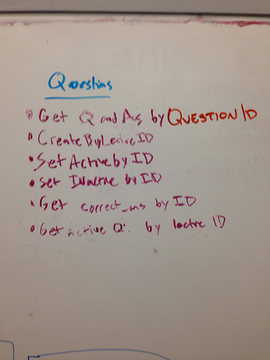 Questions
Get Q and Ans by QUESTION ID
Create By Lectre ID
Set Active by ID
Set Inactive by ID
Get correct_ans by ID
Get Active Q. by lectre ID